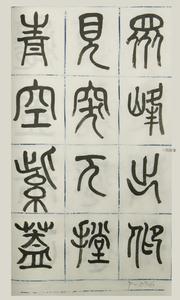 眾峰出仰
見突兀撐
青空紫蓋